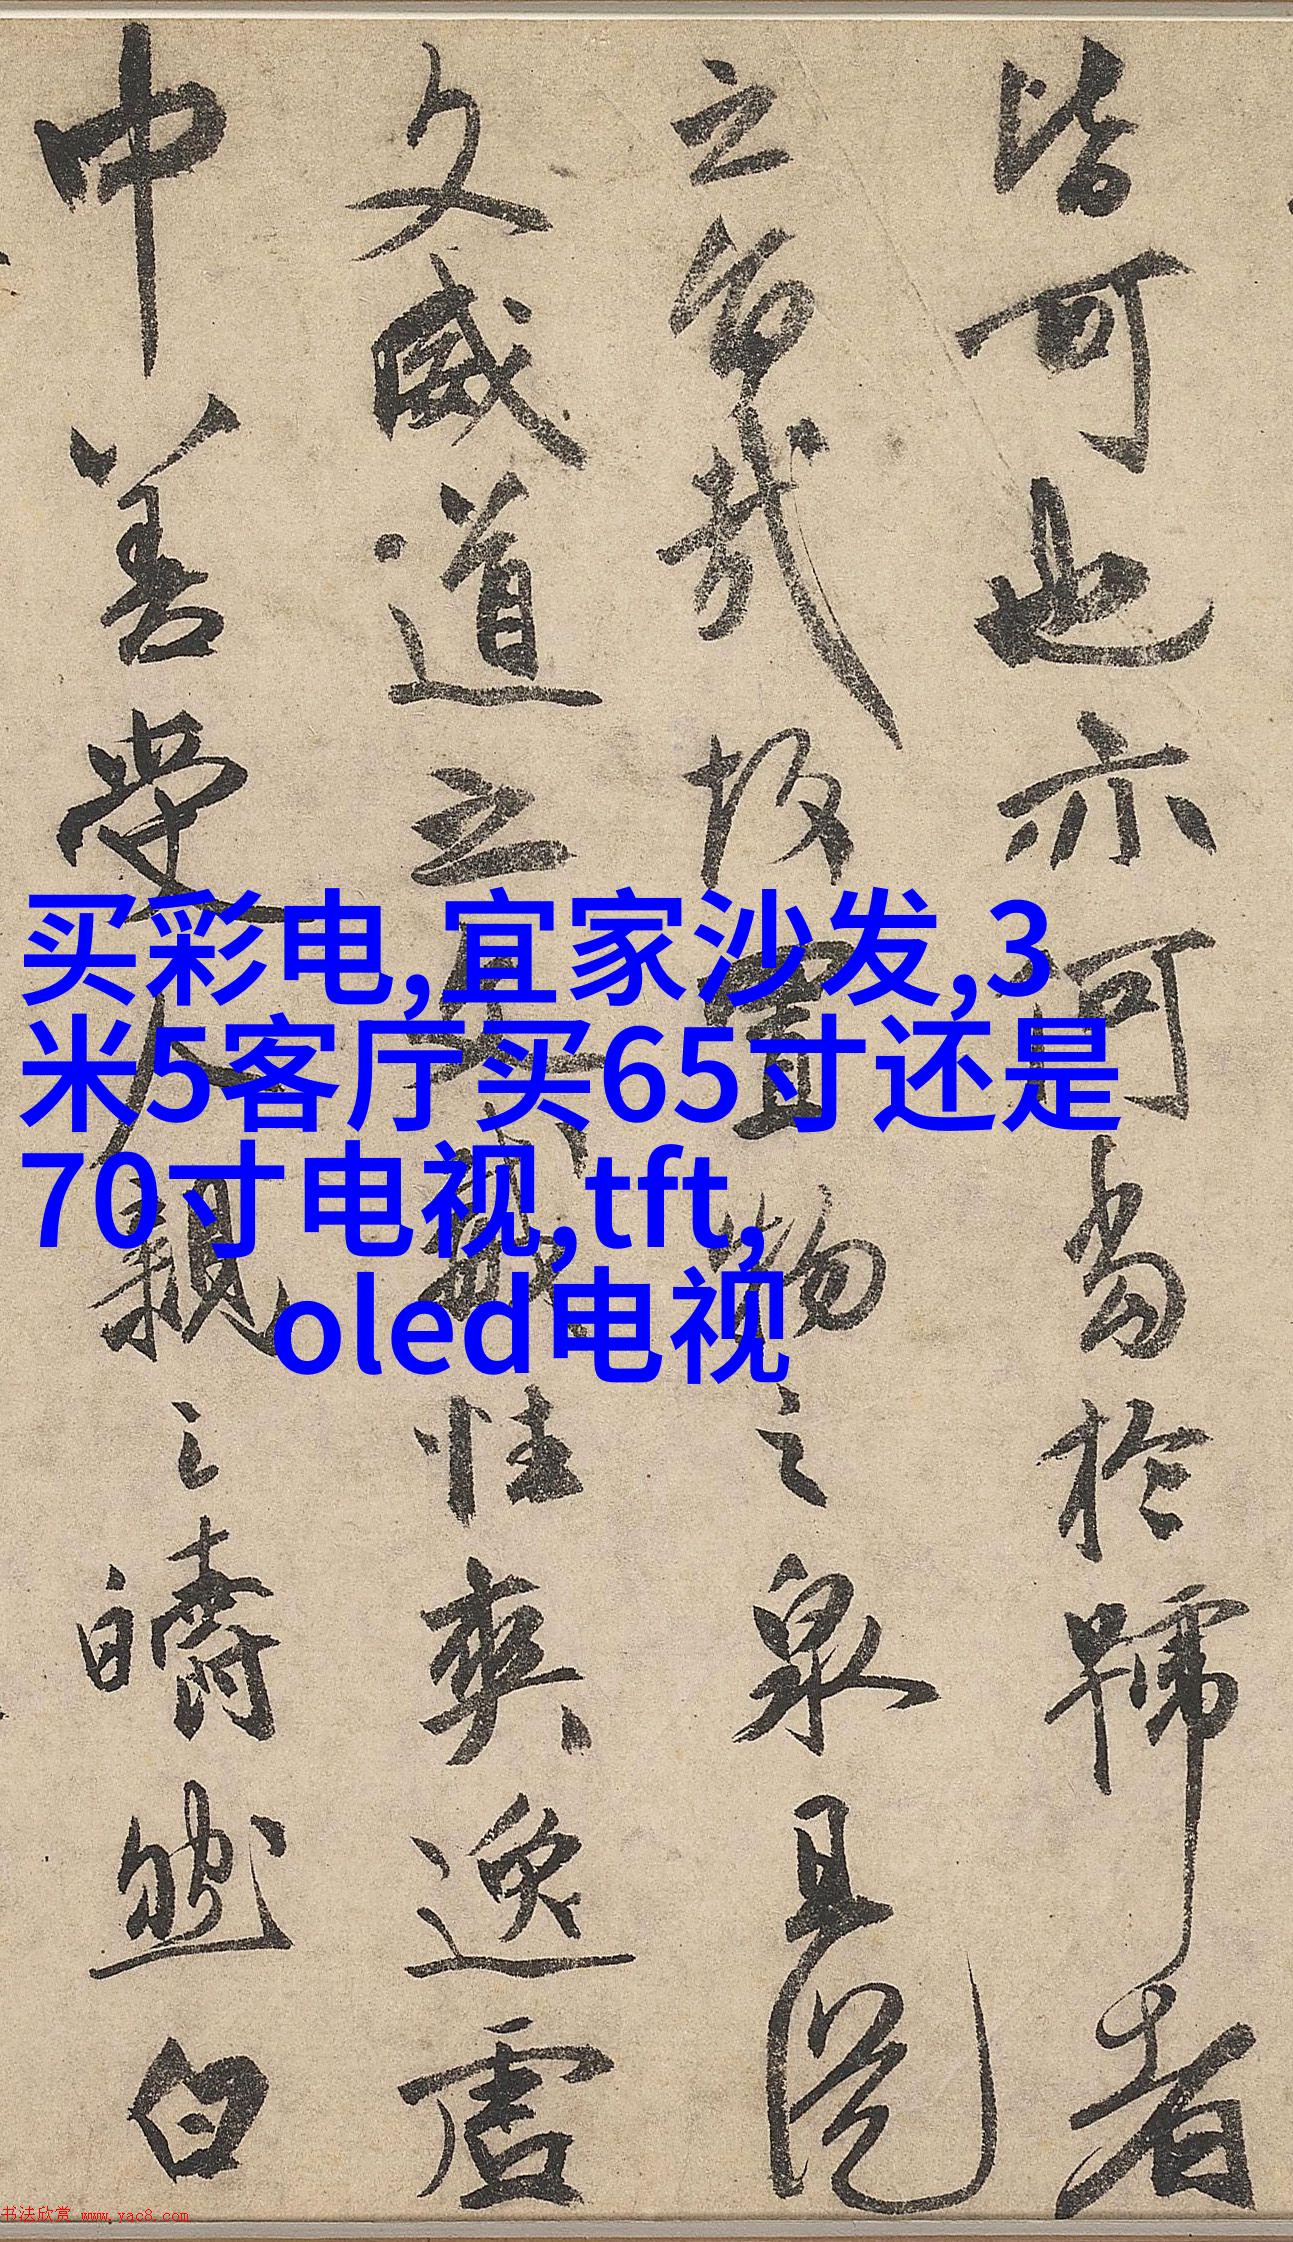 皆可也亦何當於者
之哉故置物之具
文威道之性爽逸虛
中善人親之然白
买彩电,宜家沙发,3
米5客厅买65寸还是
70寸电视,tft,
oled电视
书法欣赏 www.yac8.com